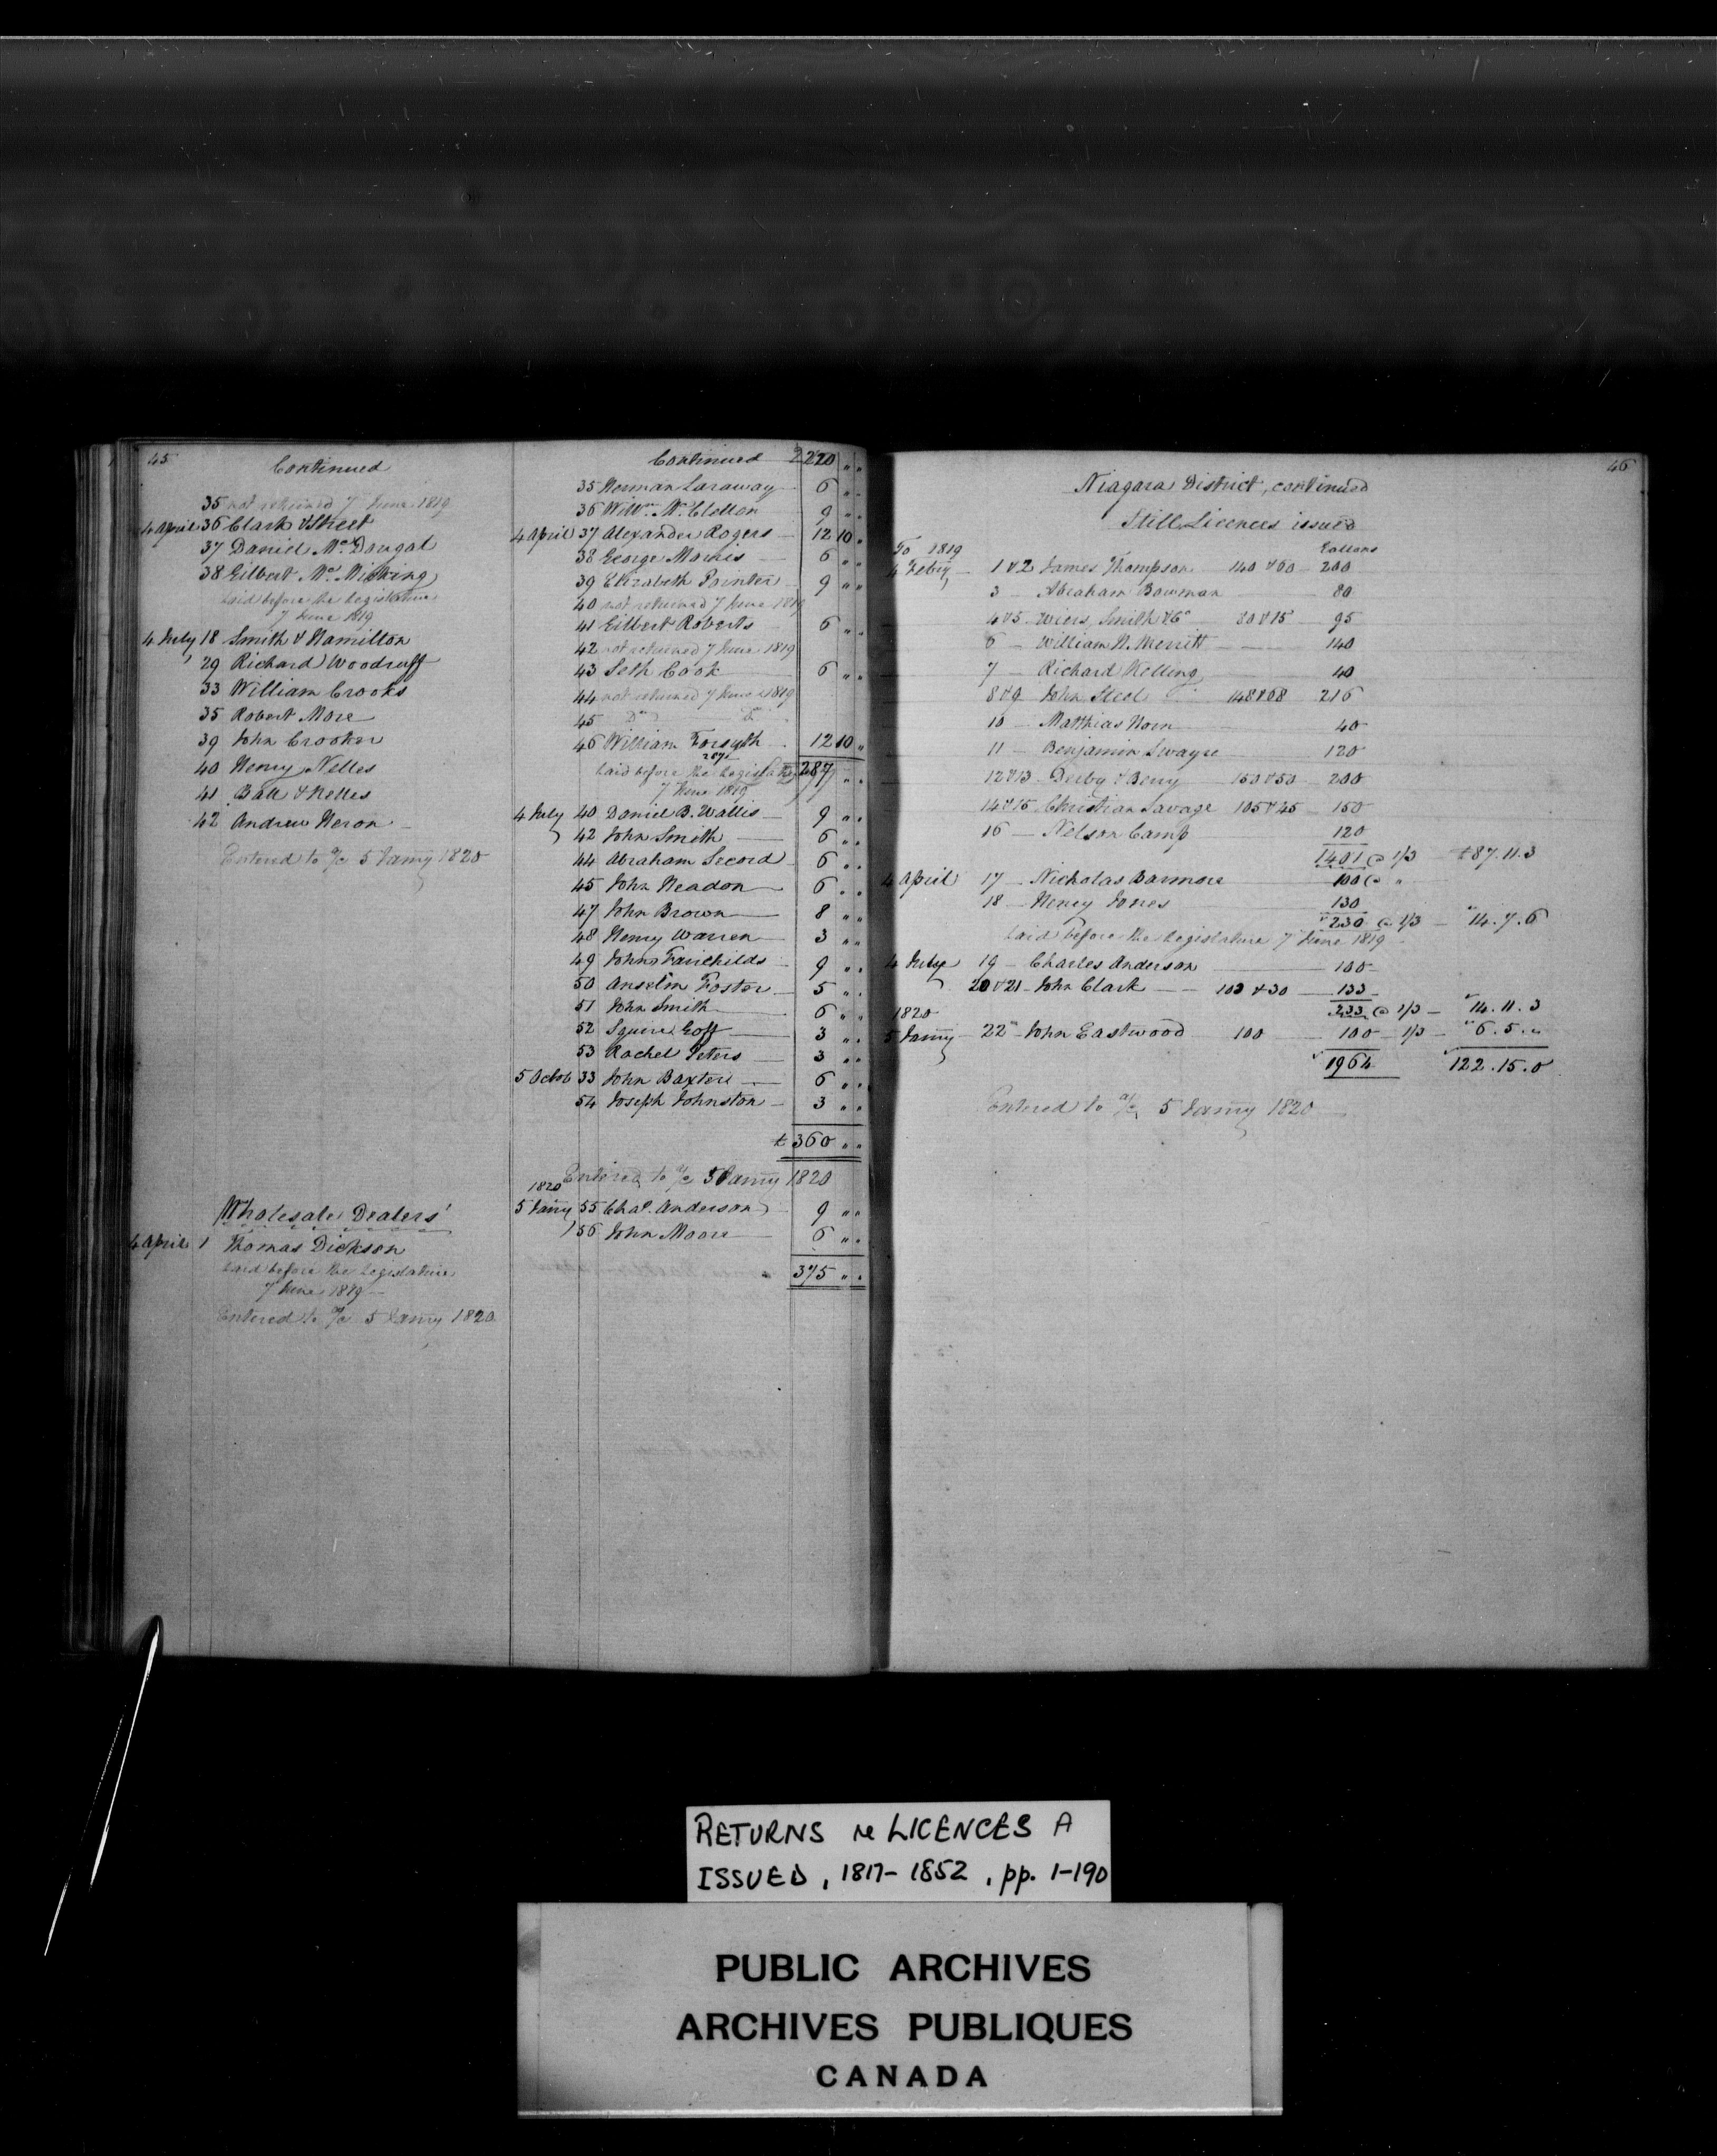 45
Continued
35 not returned 7 June 1819
4 April 36 Clark & Street
37 Daniel McDougal
38 Gilbert McMicking
Laid before the Legislature
7 June 1819
4 July 18 Smith & Hamilton
29 Richard Woodruff
33 William Crooks
35 Robert More
39 John Crooker
40 Henry Nelles
41 Ball & Nelles
42 Andrew Heron
Entered to a/c 5 Jany 1820
Wholesale Dealers
4 April 1 Thomas Dickson
Laid before the Legislature
7 June 1819
Entered to a/c 5 Jany 1820
Continued 220 " "
35 Herman Laraway 6 " "
36 Willm. McClellan 9 " "
4 April 37 Alexander Rogers 12 10 "
38 George Morris 6 " "
39 Elizabeth Painter 9 " "
40 not returned 7 June 1819
41 Gilbert Roberts 6 " "
42 not returned 7 June 1819
43 Seth Cook 6 " "
44 not returned 7 June 1819
45 Do Do
46 William Forsyth 12 10 "
Laid before the Legislature 287 " "
7 June 1819
4 July 40 Daniel B. Wallis 9 " "
42 John Smith 6 " "
44 Abraham Secord 6 " "
45 John Headon 6 " "
47 John Brown 8 " "
48 Henry Warren 3 " "
49 John Fairchilds 9 " "
50 Anselm Foster 5 " "
51 John Smith 6 " "
52 Squire Goff 3 " "
53 Rachel Peters 3 " "
5 Octob 33 John Baxter 6 " "
54 Joseph Johnston 3 " "
£ 360 " "
Entered to a/c 5 Jany 1820
1820
5 Jany 55 Chas. Anderson 9 " "
56 John Moore 6 " "
375 " "
46
Niagara District, continued
Still Licences issued
To 1819 Gallons
4 Feby 1 & 2 James Thompson 140 & 60 200
3 Abraham Bowman 80
4 & 5 Wiers, Smith & Co 80 & 15 95
6 William H. Merritt 140
7 Richard Kelling 40
8 & 9 John Steel 148 & 68 216
10 Matthias Horn 40
11 Benjamin Swayze 120
12 & 13 Derby & Berry 150 & 50 200
14 & 15 Christian Savage 105 & 45 150
16 Nelson Camp 120
1401 @ 1/3 £87.11.3
4 April 17 Nicholas Barmore 100 @ "
18 Henry Jones 130
230 @ 1/3 " 14.7.6
Laid before the Legislature 7 June 1819
4 July 19 Charles Anderson 100
20 & 21 John Clark 103 & 30 133
233 @ 1/3 " 14.11.3
1820
5 Jany 22 John Eastwood 100 100 1/3 " 6.5.
1964 122.15.0
Entered to a/c 5 Jany 1820
RETURNS re LICENCES A
ISSUED, 1817-1852, pp. 1-190
PUBLIC ARCHIVES
ARCHIVES PUBLIQUES
CANADA